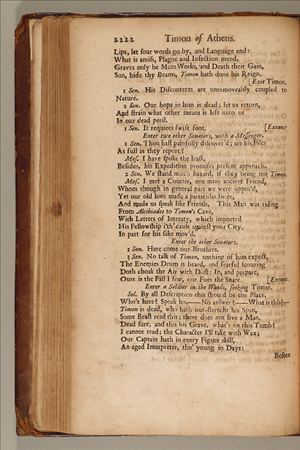 2222 Timon of Athens.
Lips, let four words go by, and Language end:
What is amiss, Plague and Infection mend.
Graves only be Mens Works, and Death their Gain,
Sun, hide thy Beams, Timon hath done his Reign.
[Exit Timon.
1 Sen. His Discontents are unremoveably coupled to
Nature.
2 Sen. Our hope in him is dead; let us return,
And strain what other means is left unto us
In our dead peril.
1 Sen. It requires swift foot. [Exeunt.
Enter two other Senators, with a Messenger.
1 Sen. Thou hast painfully discover'd; are his Files
As full as they report?
Mes. I have spoke the least.
Besides, his Expedition promises present approach.
2 Sen. We stand much hazard, if they bring not Timon.
Mes. I met a Courier, one mine ancient Friend,
Whom though in general part we were oppos'd,
Yet our old love made a particular force,
And made us speak like Friends. This Man was riding
From Alcibiades to Timon's Cave,
With Letters of Intreaty, which imported
His Fellowship i'th' cause against your City,
In part for his sake mov'd.
Enter the other Senators.
1 Sen. Here come our Brothers.
3 Sen. No talk of Timon, nothing of him expect,
The Enemies Drum is heard, and fearful scouring
Doth choak the Air with Dust: In, and prepare,
Ours is the Fall I fear, our Foes the Snare. [Exeunt.
Enter a Soldier in the Woods, seeking Timon.
Sol. By all Description this should be the Place.
Who's here? Speak ho,—— No answer?——What is this?—
Timon is dead, who hath out-stretcht his Span,
Some Beast read this; there does not live a Man.
Dead sure, and this his Grave, what's on this Tomb?
I cannot read; the Character I'll take with Wax;
Our Captain hath in every Figure skill,
An aged Interpreter, tho' young in Days:
Before